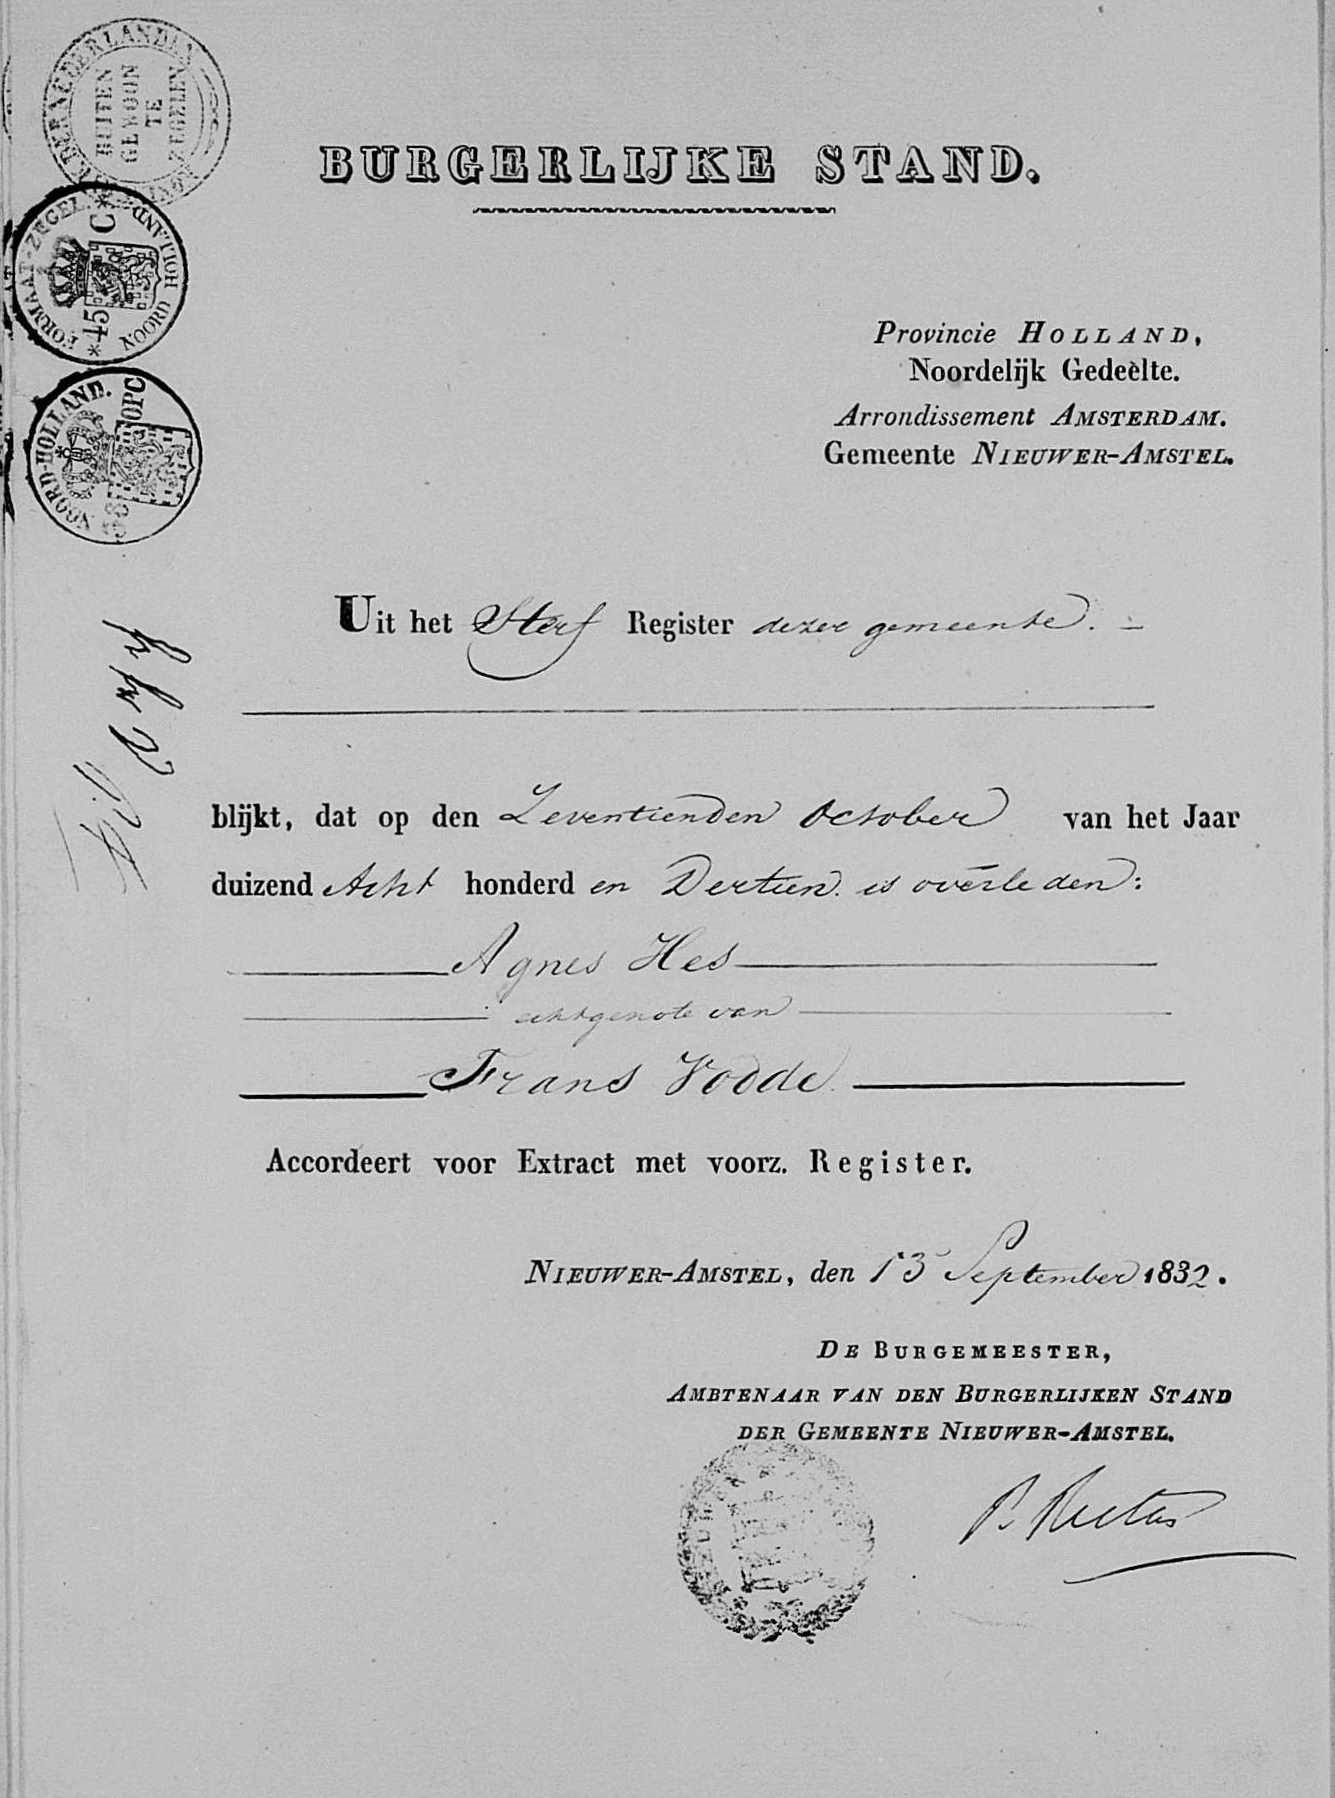 DER NEDERLANDEN
BUITEN
GEWOON
TE
ZEGELEN
FORMAAT-ZEGEL * C
NOORD HOLLAND
* 45
NOORD-HOLLAND.
38 OPC
BURGERLIJKE STAND.
Provincie HOLLAND,
Noordelijk Gedeelte.
Arrondissement AMSTERDAM.
Gemeente NIEUWER-AMSTEL.
Uit het Sterf Register dezer gemeente. -
blijkt, dat op den Zeventienden October van het Jaar
duizend Acht honderd en Dertien is overleden:
Agnes Hes
echtgenote van
Frans Vodde
Accordeert voor Extract met voorz. Register.
NIEUWER-AMSTEL, den 13 September 1832.
DE BURGEMEESTER,
AMBTENAAR VAN DEN BURGERLIJKEN STAND
DER GEMEENTE NIEUWER-AMSTEL.